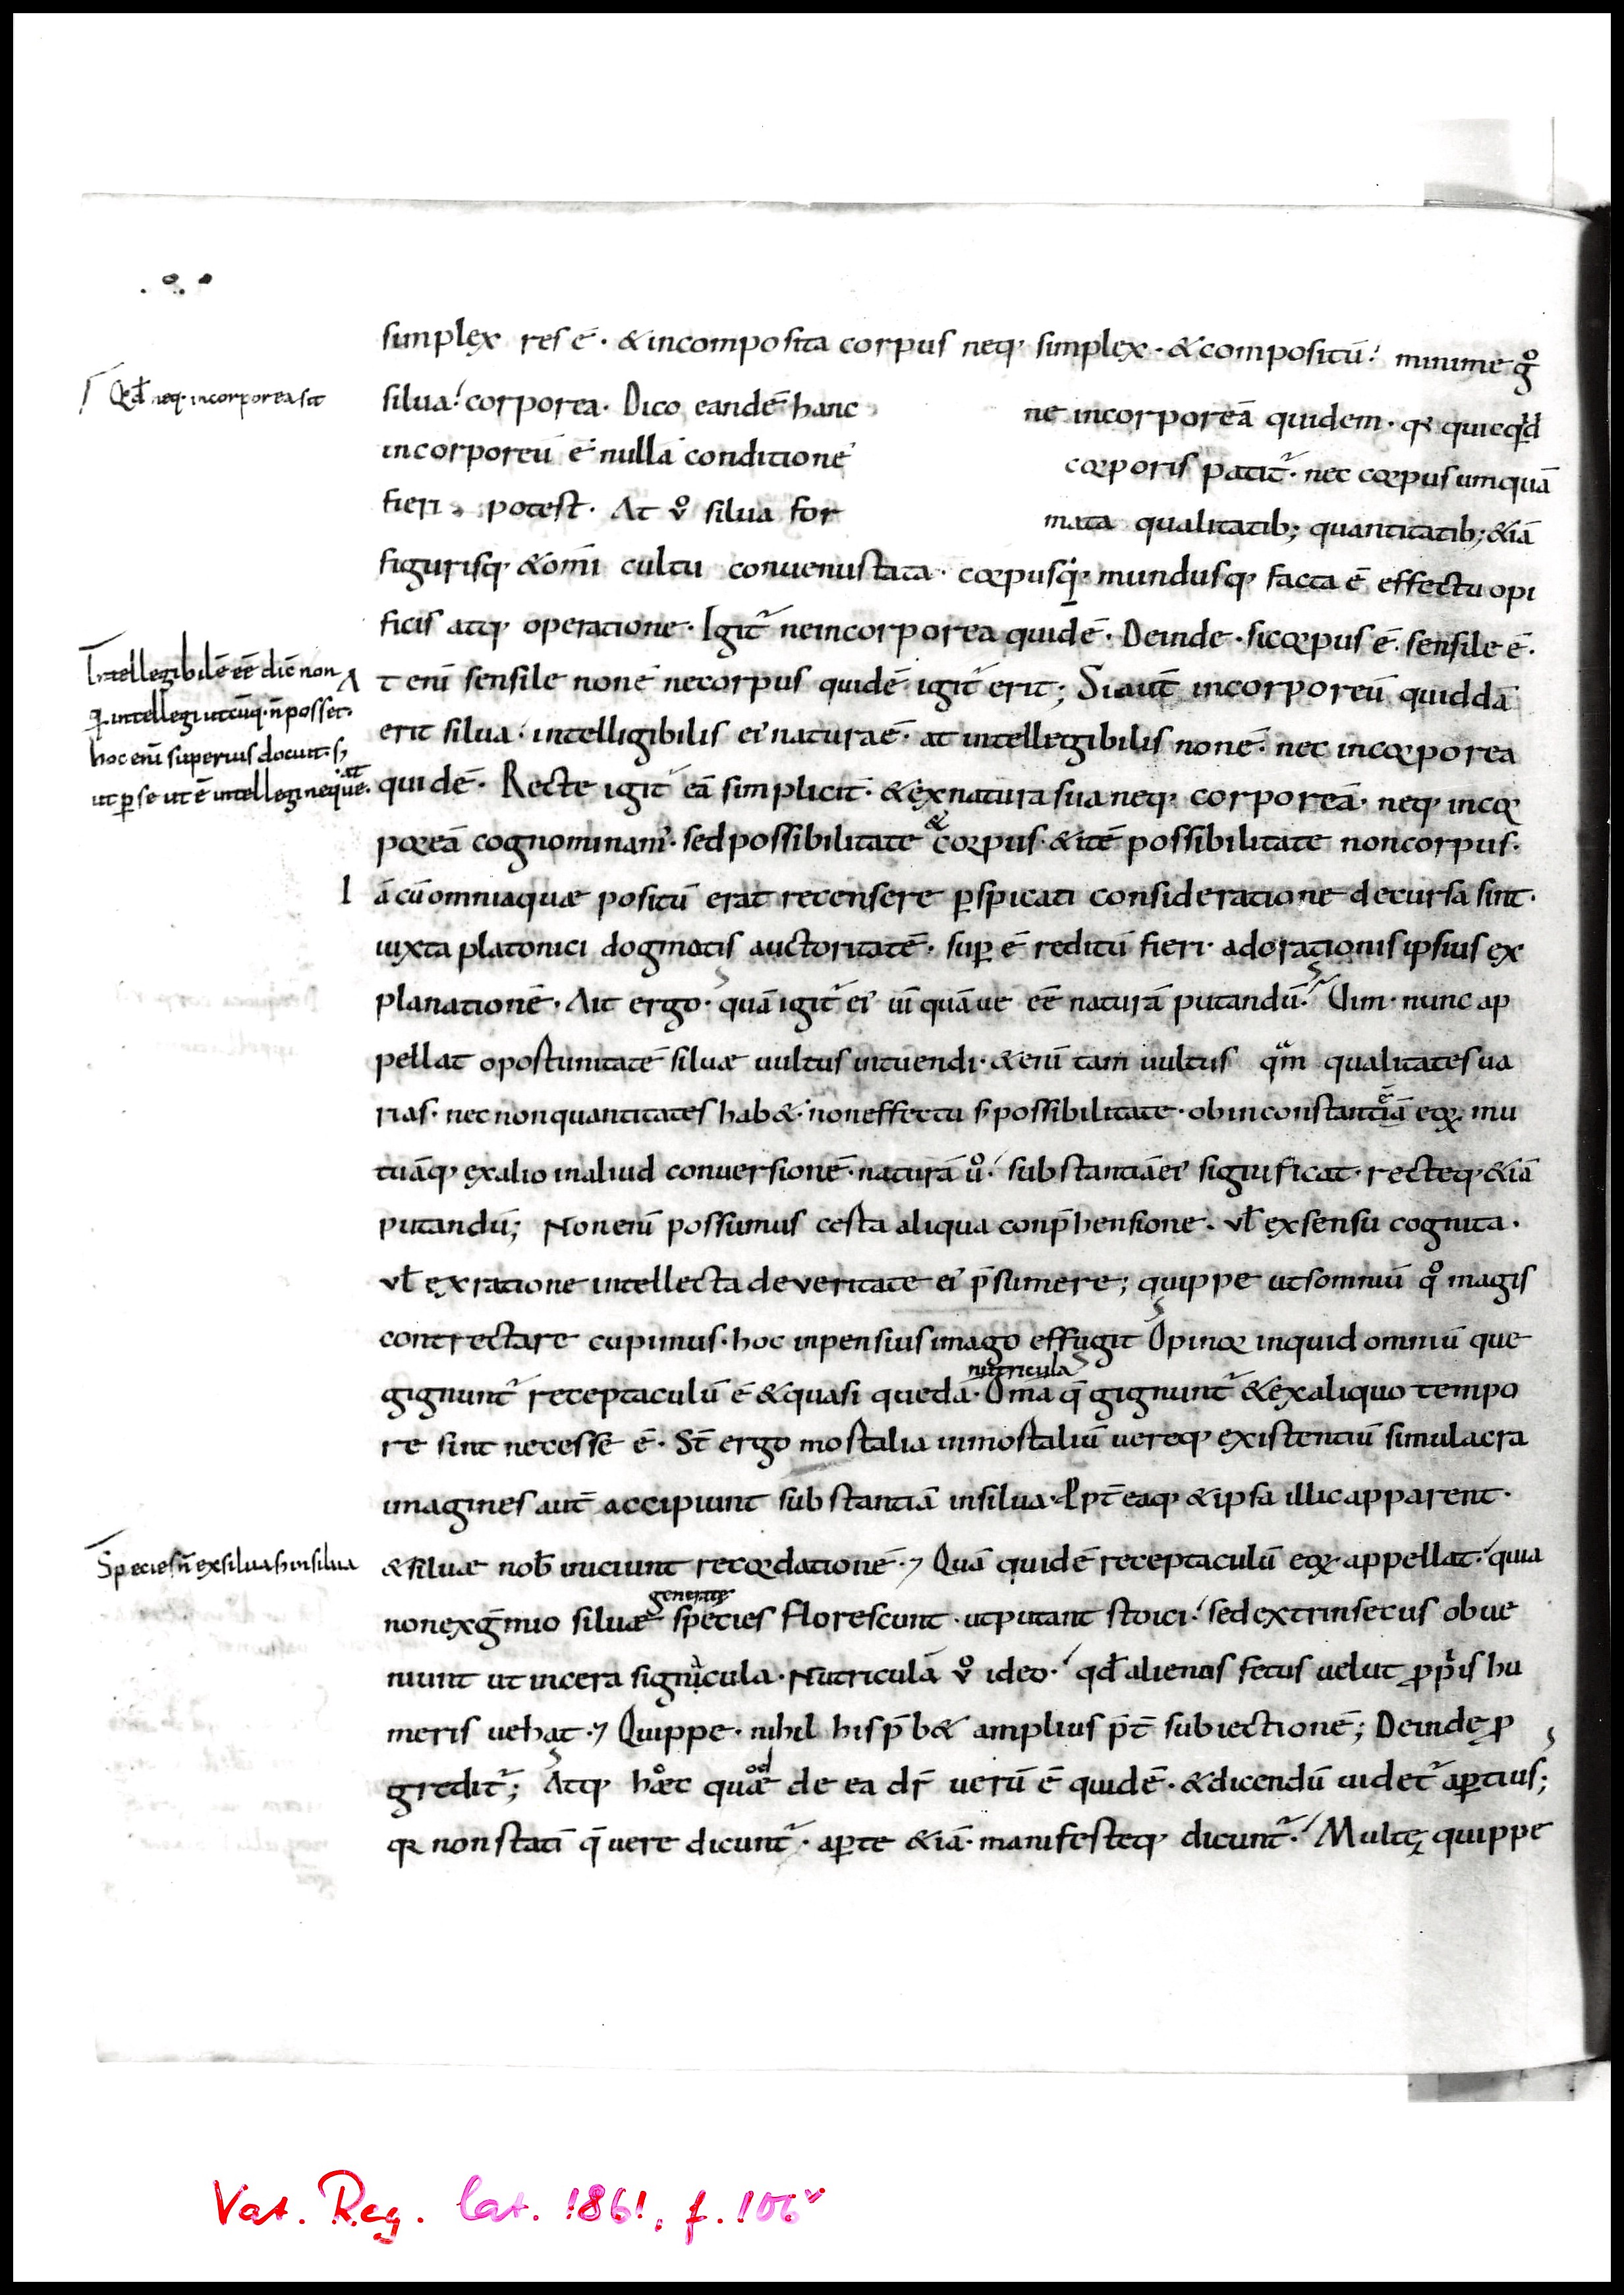 simplex res ē· & incomposita corpus neq; simplex· & compositū· minime gͦ
Qd̄ neq· incorporea sit
silua· corporea· Dico eandē hanc ne incorporeā quidem· q̨ quicqd̄
incorporeū ē nulla conditione corporis patit᷑· nec corpus umquā
fieri potest· At v̊ silua for mata qualitatib; quantitatib; &iā
figurisq; & omī cultu conuenustata· corpusq; mundusq; facta ē effectu opi
ficis atq; operatione· Igit᷑ ne incorporea quidē· Deinde· si corpus ē· sensile ē·
Intellegibilē eē dic̄ non
qi intellegi utcūq· n̄ posset·
hoc enī superius docuit· s;
ut p̱ se ut ē intellegi nequeat·
A t enī sensile non ē nec corpus quidē igit᷑ erit; Si aut̄ incorporeū quiddā
erit silua· intelligibilis ei᾿ natura ē· at intellegibilis non ē· nec incorporea
quidē· Recte igit᷑ eā simplicit᷑· & ex natura sua neq; corporeā· neq; incor
poreā cognominam᾿· sed possibilitate & corpus· & itē possibilitate non corpus·
I ā cū omnia quæ positū erat recensere p̱spicati consideratione decursa sint·
iuxta platonici dogmatis auctoritatē· sup̱ ē reditū fieri· ad orationis ipsius ex
planationē· Ait ergo· quā igit᷑ ei᾿ uī quāue eē naturā putandū· Uim· nunc ap
pellat oportunitatē siluæ uultus intuendi· & enī tam uultus qͣm qualitates ua
rias· nec non quantitates hab&· non effectu s; possibilitate· ob inconstantiā eoꝝ mu
tuāq; ex alio in aliud conuersionē· naturā ů· substantiā ei᾿ significat· recteq; &iā
putandū; Non enī possumus certa aliqua conp̄hensione· vl̄ ex sensu cognita·
vl̄ ex ratione intellecta de veritate ei᾿ p̄sumere; quippe ut somniū qͦ magis
contrectare cupimus· hoc inpensius imago effugit Opinor inquid omniū que
nutricula
gignunt᷑ receptaculū ē & quasi quedā· Om̄a q̄ gignunt᷑ & ex aliquo tempo
re sint necesse ē· St̄ ergo mortalia inmortaliū uereq; existentiū simulacra
imagines aut̄ accipiunt substantiā in silua· Ppt̄eaq; & ipsa illic apparent·
Species n̄ ex silua s; in silua
& siluæ nob̄ iniciunt recordationē· Quā quidē receptaculū eoꝝ appellat· quia
generatę
non ex ḡmio siluæ species florescunt· ut putant stoici· sed extrinsecus obue
niunt ut in cera signicula· Nutriculā v̊ ideo· qd̄ alienos fetus uelut ꝓp̱is hu
meris uehat· Quippe· nihil his p̄b& amplius p̄t̄ subiectionē; Deinde ꝓ
gredit᷑; Atq; hoc quod de ea dr̄ uerū ē quidē· & dicendū uidet᷑ ap̱tius;
q̨ non statī q̄ uere dicunt᷑· ap̱te &iā· manifesteq; dicunt᷑· Multę quippe
Vat. Reg. lat. 1861, f. 106ᵛ